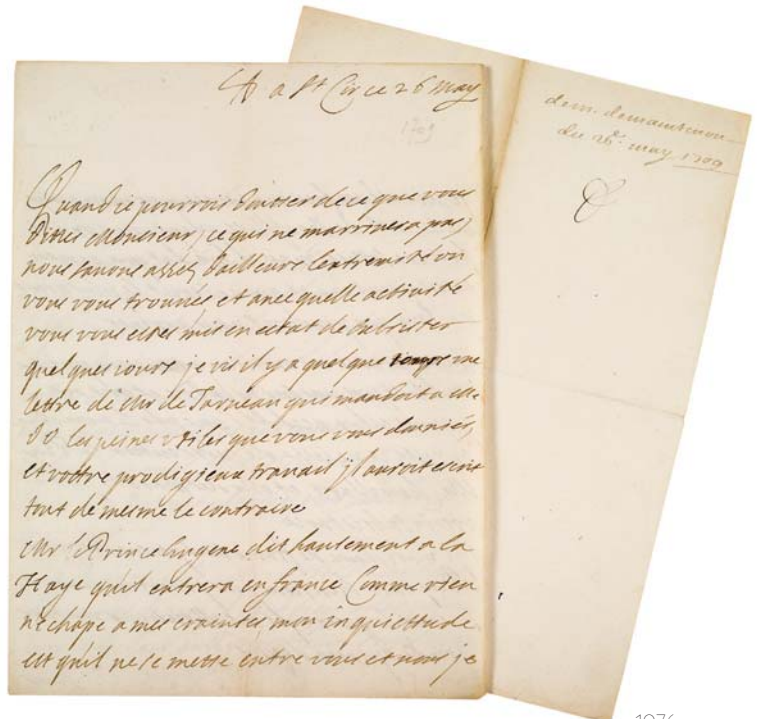 a St Cir ce 26 may
1709
Quand ie pourrois douter de ce que vous
dittes Monsieur ce qui ne marrivera pas
nous savons assez dailleurs lextremité ou
vous vous trouvés et avec quelle activité
vous vous estes mis en estat de subsister
quelques iours je vis il y a quelque temps une
lettre de Mr de qui mandoit a
les peines utiles que vous vous donniés,
et vostre prodigieux travail il auroit escrit
tout de mesme le contraire
Mr le Prince Eugene dit hautement a la
Haye quil entrera en france Comme rien
nechape a mes craintes mon inquiettude
est quil ne se mette entre vous et nous je
de m. de maintenon
du 26e may 1709
1076